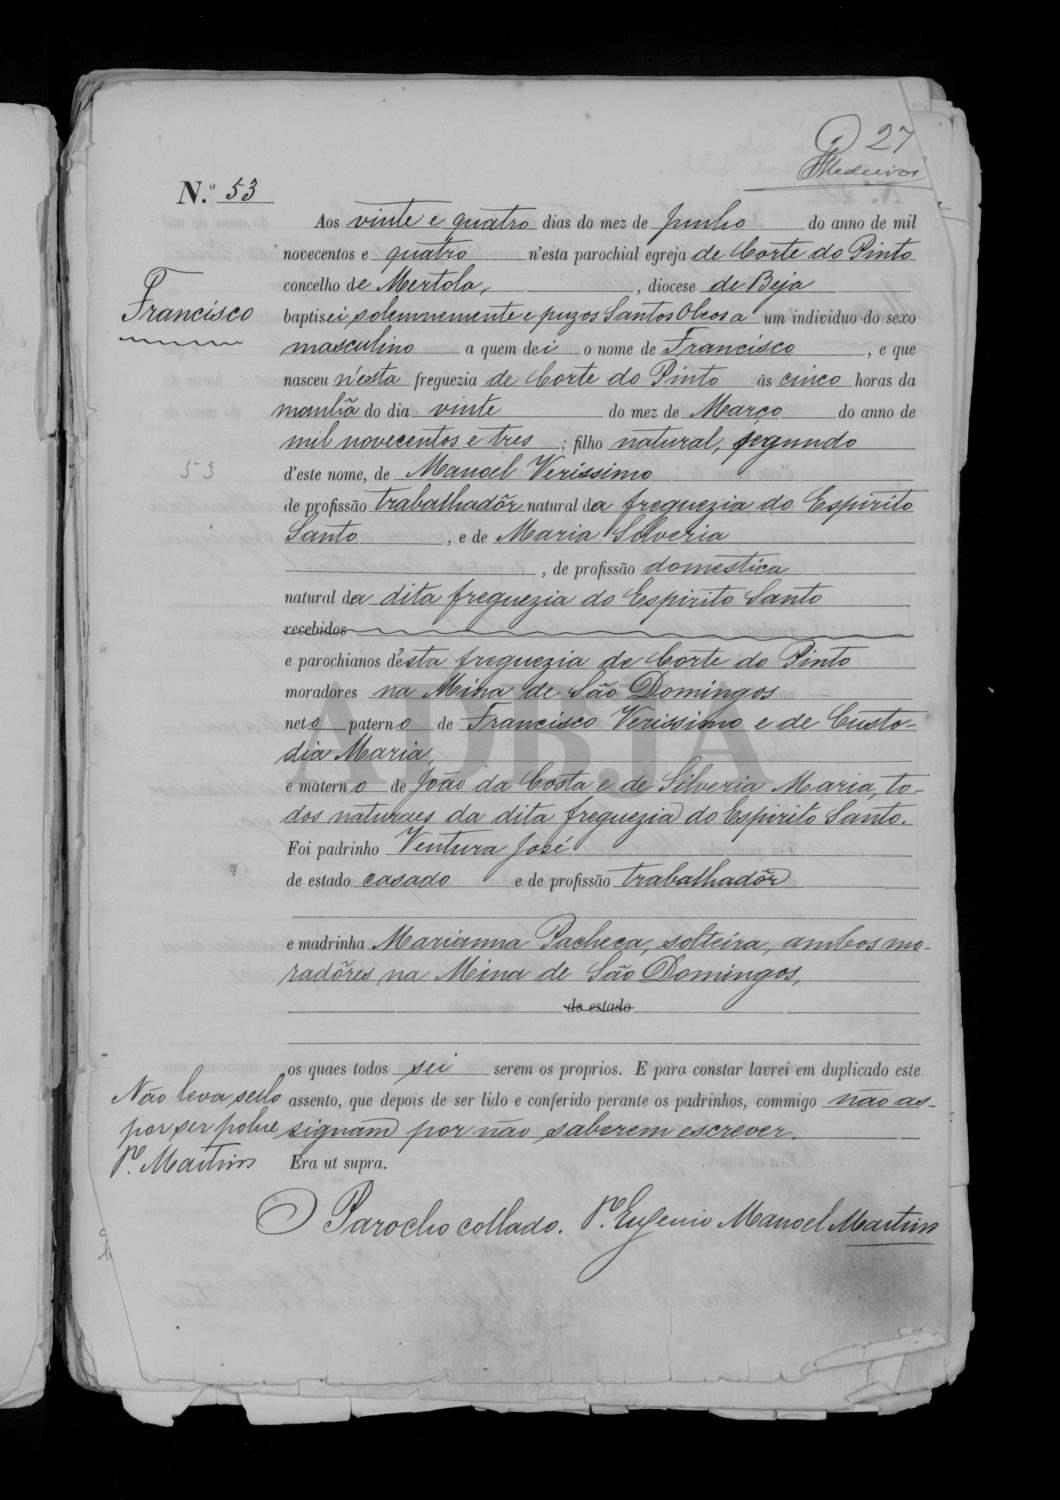 27
Medeiros
N.º 53
Aos vinte e quatro dias do mez de Junho do anno de mil
novecentos e quatro n'esta parochial egreja de Corte do Pinto
Francisco
concelho de Mertola, , diocese de Beja
baptisei solemnemente e puz os Santos Oleos a um individuo do sexo
masculino a quem dei o nome de Francisco , e que
nasceu n'esta freguezia de Corte do Pinto ás cinco horas da
manhã do dia vinte do mez de Março do anno de
mil novecentos e tres ; filho natural, segundo
53
d'este nome, de Manoel Verissimo
de profissão trabalhadôr natural da freguezia do Espirito
Santo , e de Maria Silveria
, de profissão domestica
natural da dita freguezia do Espirito Santo
recebidos
e parochianos d'esta freguezia de Corte do Pinto
moradores na Mina de São Domingos
neto paterno de Francisco Verissimo e de Custo-
dia Maria,
ADBJA
e materno de João da Costa e de Silveria Maria, to-
dos naturaes da dita freguezia do Espirito Santo.
Foi padrinho Ventura José
de estado casado e de profissão trabalhadôr
e madrinha Marianna Pacheca, solteira, ambos mo-
radôres na Mina de São Domingos,
de estado
os quaes todos sei serem os proprios. E para constar lavrei em duplicado este
assento, que depois de ser lido e conferido perante os padrinhos, commigo não as-
signam por não saberem escrever.
Era ut supra.
Não leva sello
por ser pobre
P.e Martins
O Parocho collado. P.e Eugenio Manoel Martins